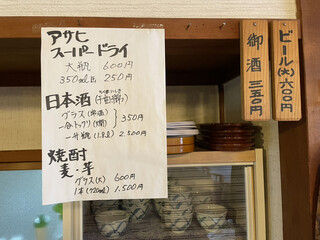 アサヒ
スーパードライ
大瓶 600円
350ml缶 250円
日本酒
グラス(常温)
350円
一升瓶(1.8ℓ) 2500円
焼酎
麦・芋
グラス(大) 600円
1本(720ml) 1,500円
御酒 三五〇円
ビール(大) 六〇〇円